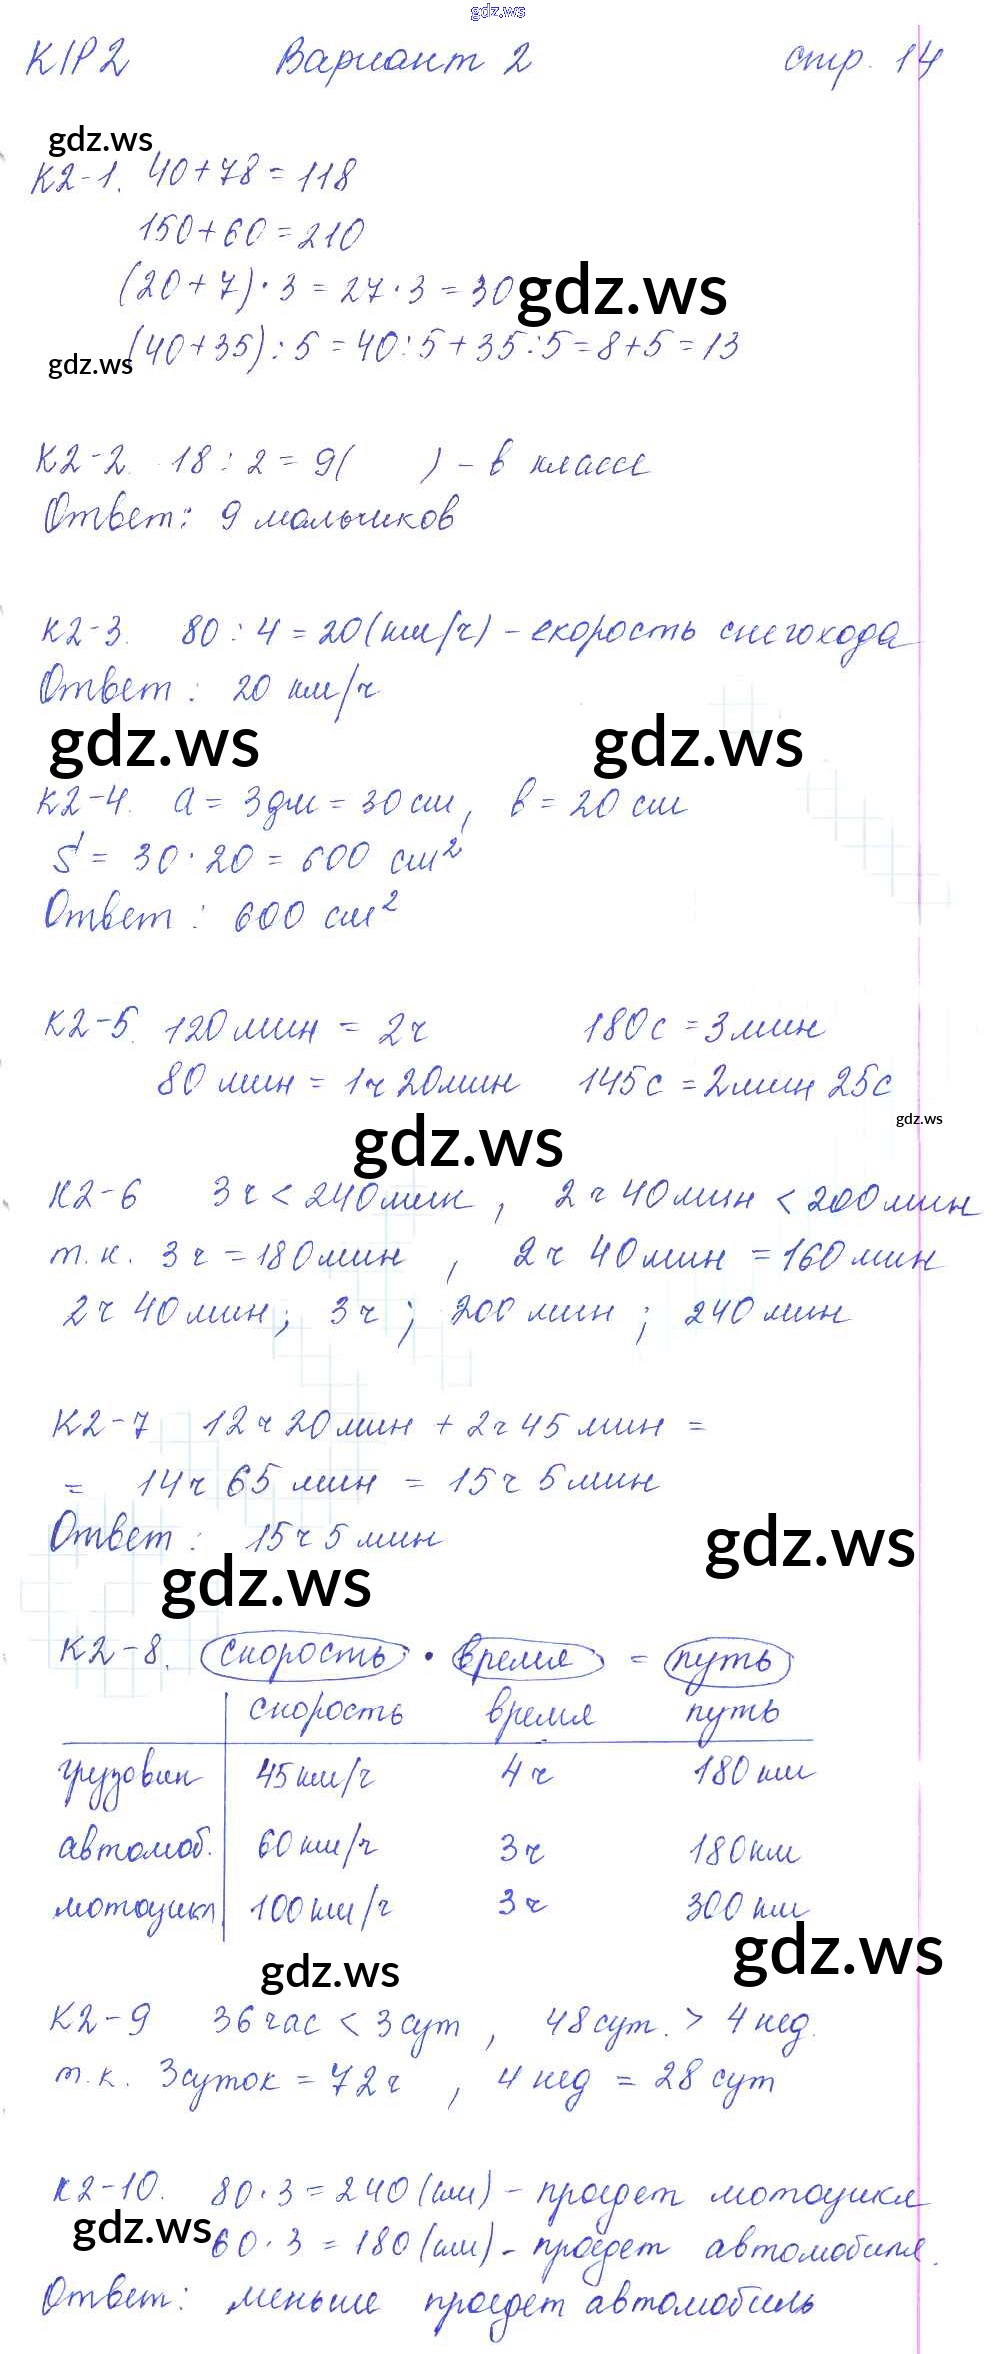 gdz.ws
К/Р2 Вариант 2 стр. 14
gdz.ws
К2-1. 40+78=118
150+60=210
(20+7)·3=27·3=30 gdz.ws
(40+35):5=40:5+35:5=8+5=13
gdz.ws
К2-2. 18:2=9( ) - в классе
Ответ: 9 мальчиков
К2-3. 80:4=20(км/ч) - скорость снегохода
Ответ: 20 км/ч
gdz.ws gdz.ws
К2-4. a=3дм=30см, в=20см
S=30·20=600 см²
Ответ: 600 см²
К2-5. 120мин=2ч 180с=3мин
80мин=1ч20мин 145с=2мин 25с
gdz.ws
gdz.ws
К2-6 3ч<240мин, 2ч40мин<200мин
т.к. 3ч=180мин, 2ч 40мин=160мин
2ч 40мин; 3ч; 200мин; 240мин
К2-7 12ч20мин+2ч45мин=
= 14ч 65 мин = 15ч 5мин
Ответ: 15ч5мин
gdz.ws
gdz.ws
К2-8. скорость · время = путь
скорость время путь
грузовик 45км/ч 4ч 180км
автомоб. 60км/ч 3ч 180км
мотоцикл 100км/ч 3ч 300км
gdz.ws gdz.ws
К2-9 36час<3сут, 48сут.>4нед.
т.к. 3суток=72ч, 4нед=28сут
К2-10. 80·3=240(км) - проедет мотоцикл
gdz.ws 60·3=180(км) - проедет автомобиль.
Ответ: меньше проедет автомобиль